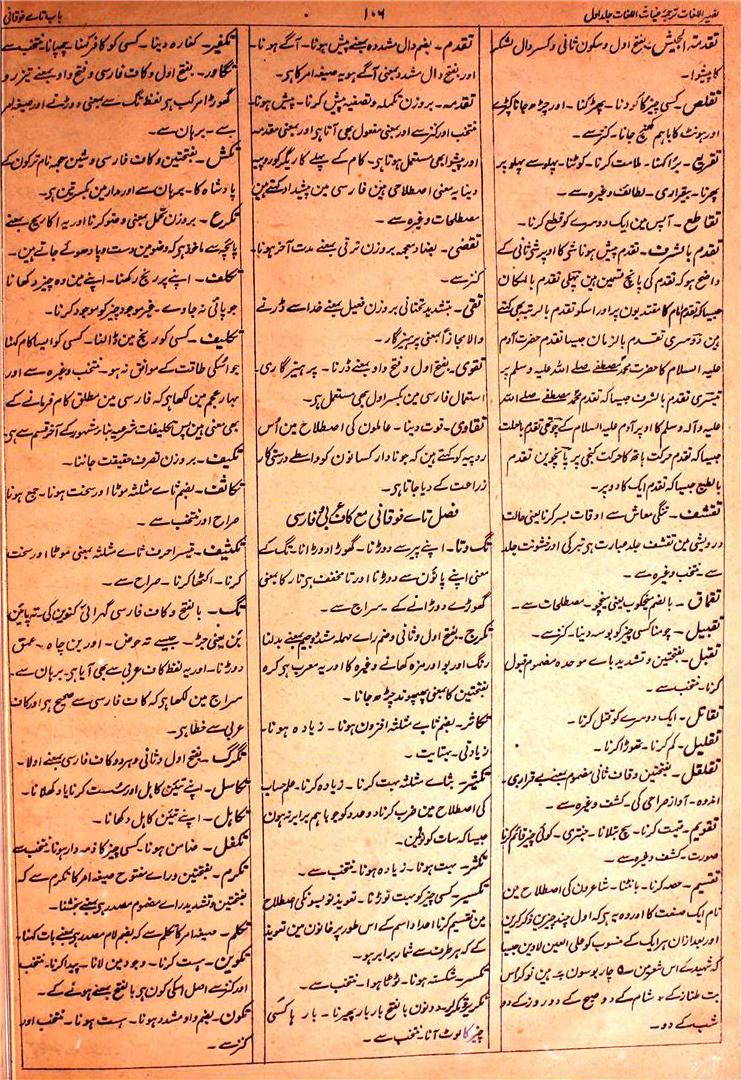 نصیر اللغات ترجمہ غیاث اللغات جلد اول
۱۰۶
باب تاے فوقانی
تقدمۃ الجیش۔ بفتح اول و سکون ثانی و کسر دال لشکر
کا پیشوا۔
تقلص۔ کسی چیز کا کودنا۔ پھڑکنا۔ اور چڑھ جانا کپڑے
اور ہونٹ کا باہم کھنچ جانا۔ کنز سے۔
تقریع۔ برا کہنا۔ ملامت کرنا۔ کوٹنا۔ پہلو سے پہلو پر
پھرنا۔ بیقراری۔ لطائف وغیرہ سے۔
تقاطع۔ آپس مین ایک دوسرے کو قطع کرنا۔
تقدم بالشرف۔ تقدم پیش ہونا شی کا اور شی ثانی کے
واضح ہو کہ تقدم کی پانچ قسمین ہین پہلی تقدم بالمکان
جیسا کہ تقدم امام کا مقتدیون پر اور اسکو تقدم بالرتبہ بھی کہتے
ہین دوسری تقدم بالزمان جیسا تقدم حضرت آدم
علیہ السلام کا حضرت محمد مصطفے صلے اللہ علیہ وسلم پر
تیسری تقدم بالشرف جیسا کہ تقدم محمد مصطفے صلے اللہ
علیہ وآلہ وسلم کا اوپر آدم علیہ السلام کے چوتھی تقدم بالعلت
جیسا کہ تقدم حرکت ہاتھ کا حرکت کنجی پر پانچوین تقدم
بالطبع جیسا کہ تقدم ایک کا دو پر۔
تقشف۔ تنگی معاش سے اوقات بسر کرنا یعنی حالت
درویشی مین تقشف جلد عبارت ہی تیرگی اور خشونت جلد
سے منتخب وغیرہ سے۔
تقماق۔ بالضم میخکوب یعنی میخچو۔ مصطلحات سے۔
تقبیل۔ چومنا کسی چیز کو بوسہ دینا۔ کنز سے۔
تقبل۔ بفتحتین و تشدید باے موحدہ مضموم قبول
کرنا۔ منتخب سے۔
تقاتل۔ ایک دوسرے کو قتل کرنا۔
تقلیل۔ کم کرنا۔ تھوڑا کرنا۔
تقلقل۔ بفتحتین وقاف ثانی مضموم بمعنے بے قراری۔
اندوہ۔ آواز صراحی کی۔ کشف وغیرہ سے۔
تقویم۔ قیمت کرنا۔ سچ بتلانا۔ جنتری۔ کوئی چیز قائم کرنا
صورت۔ کشف وغیرہ سے۔
تقسیم۔ حصہ کرنا۔ بانٹنا۔ شاعرون کی اصطلاح مین
نام ایک صنعت کا اور وہ یہ ہی کہ اول چند چیزین ذکر کرین
اور بعد ازان ہر ایک کے منسوب کو علی العین لاوین جیسا
کہ شہید کے اس شعر مین ۵ چار بوسون پہ ہین نوکر اس
بت طناز کے ٭ شام کے دو صبح کے دو روز کے دو
شب کے دو۔
تقدم۔ بضم دال مشددہ بمعنے پیش ہونا۔ آگے ہونا۔
اور بفتح دال مشدد بمعنی آگے ہو یہ صیغہ امر کا ہی۔
تقدمہ۔ بروزن تکملہ و تصفیہ پیش کرنا۔ پیش ہونا۔
منتخب اور کنز سے اور بمعنی مفعول بھی آتا ہی اور بمعنی مقدمہ
اور پیشوا بھی مستعمل ہوتا ہی۔ کام کے پہلے کاریگر کو روپیہ
دینا یہ معنی اصطلاحی ہین فارسی مین پیشداد کہتے ہین
مصطلحات وغیرہ سے۔
تقضی۔ بضاد معجمہ بروزن ترقی بمعنے مدت آخر ہونا۔
کنز سے۔
تقی۔ بتشدید تحتانی بروزن فعیل بمعنے خدا سے ڈرنے
والا مجازاً بمعنی پرہیزگار۔
تقوی۔ بفتح اول و فتح واو بمعنے ڈرنا۔ پرہیزگاری۔
استمال فارسی مین بکسر اول بھی مستعمل ہی۔
تقاوی۔ قوت دینا۔ عاملون کی اصطلاح مین اُس
روپیہ کو کہتے ہین کہ جو نادار کسانون کو واسطے درستی کار
زراعت کے دیا جاتا ہی۔
فصل تاے فوقانی مع کاف عربی و فارسی
تگ و تا۔ اپنے پیر سے دوڑنا۔ گھوڑا دوڑانا۔ تگ کے
معنی اپنے پاؤن سے دوڑنا اور تا مخفف ہی تاز کا بمعنی
گھوڑے دوڑانے کے۔ سراج سے۔
تکرج۔ بفتح اول و ثانی و ضم راے مہملہ مشدد و جیم بمعنے بدلنا
رنگ اور بو اور مزہ کھانے وغیرہ کا اور یہ معرب ہی کرہ
بفتحتین کا بمعنی پھپھوند چڑھ جانا۔
تکاثر۔ بضم ثاے مثلثہ افزون ہونا۔ زیادہ ہونا۔
زیادتی۔ بہتایت۔
تکثیر۔ بثاے مثلثہ بہت کرنا۔ زیادہ کرنا۔ علم حساب
کی اصطلاح مین ضرب کرنا دو عدد کو جو باہم برابر نہون
جیسا کہ سات کو تین مین۔
تکثر۔ بہت ہونا۔ زیادہ ہونا۔ منتخب سے۔
تکسیر۔ کسی چیز کو بہت توڑنا۔ تعویذ نویسون کی اصطلاح
مین تقسیم کرنا اعداد اسم کے اس طور پر خانون مین تعویذ
کے کہ ہر طرف سے شمار برابر ہو۔
تکسر۔ شکستہ ہونا۔ ٹوٹا ہوا۔ منتخب سے۔
تکریر و تکرار۔ دونون بالفتح بار بار پھیرنا۔ بار ہا کسی
چیز کا لوٹ آنا۔ منتخب سے۔
تکفیر۔ کفارہ دینا۔ کسی کو کافر کہنا۔ چھپانا۔ منتخب سے
تگاور۔ بفتح اول و کاف فارسی و فتح واو بمعنے تیز رو
گھوڑا مرکب ہی لفظ تگ سے بمعنی دوڑنے اور صیغہ امر
سے۔ برہان سے۔
تکش۔ بفتحتین و کاف فارسی و شین معجمہ نام ترکون کے
پادشاہ کا۔ برہان سے اور مدار مین بکسرتین ہی۔
تکرع۔ بروزن تحمل بمعنی وضو کرنا اور یہ اکارع بمعنے
پائچہ سے ماخوذ ہی کہ وضو مین دست و پا دھوئے جاتے ہین۔
تکلف۔ اپنے پر رنج رکھنا۔ اپنے مین وہ چیز دکھانا
جو پائی نہ جاوے۔ غیر موجود چیز کو موجود کرنا۔
تکلیف۔ کسی کو رنج مین ڈالنا۔ کسی کو ایسا کام کہنا
جو اُسکی طاقت کے موافق نہ ہو۔ منتخب وغیرہ سے اور
بہار عجم مین لکھا ہی کہ فارسی مین مطلق کام فرمانے کے
بھی معنی ہین پس تکلیفات شرعیہ بنابر مشہور کے آخر قسم سے ہی
تکیف۔ بروزن تصرف حقیقت جاننا۔
تکاثف۔ بضم ثاے مثلثہ موٹا اور سخت ہونا۔ جمع ہونا
صراح اور منتخب سے۔
تکثیف۔ تیسرا حرف ثاے مثلثہ بمعنی موٹا اور سخت
کرنا۔ اکٹھا کرنا۔ صراح سے۔
تگ۔ بالفتح و کاف فارسی گہرائی کنوین کی۔ تہ پائین
بُن یعنی جڑ۔ جیسے تہ حوض۔ اور بن چاہ۔ عمق
دوڑنا۔ اور یہ لفظ کاف عربی سے بھی آیا ہی برہان سے۔
سراج مین لکھا ہی کہ کاف فارسی سے صحیح ہی اور کاف
عربی سے خطا ہی۔
تگرگ۔ بفتح اول و ثانی و ہر دو کاف فارسی بمعنے اولا۔
تکاسل۔ اپنے تئین کاہل اور سُست کرنا یا دکھلانا۔
تکاہل۔ اپنے تئین کاہل دکھانا۔
تکفل۔ ضامن ہونا۔ کسی چیز کا ذمہ دار ہونا۔ منتخب سے
تکرم۔ بفتحتین و راے مفتوح صیغہ امر کا تکرم سے کہ
بفتحتین و تشدید راے مضموم مصدر ہی بمعنے بخشنا۔
تکلم۔ صیغہ امر کا تکلم سے کہ بضم لام مصدر ہی بمعنے بات کہنا۔
تکوین۔ ہست کرنا۔ وجود مین لانا۔ پیدا کرنا۔ منتخب
اور کنز سے اصل اسکی کون ہی بالفتح بمعنے ہونے کے۔
تکون۔ بضم واو مشدد ہونا۔ ہست ہونا۔ منتخب اور
کنز سے۔